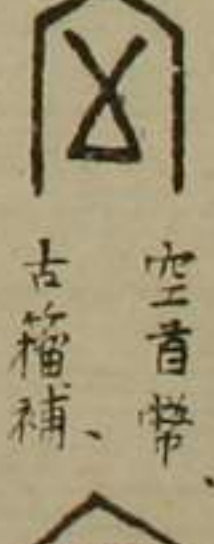 空首幣、
古籀補、